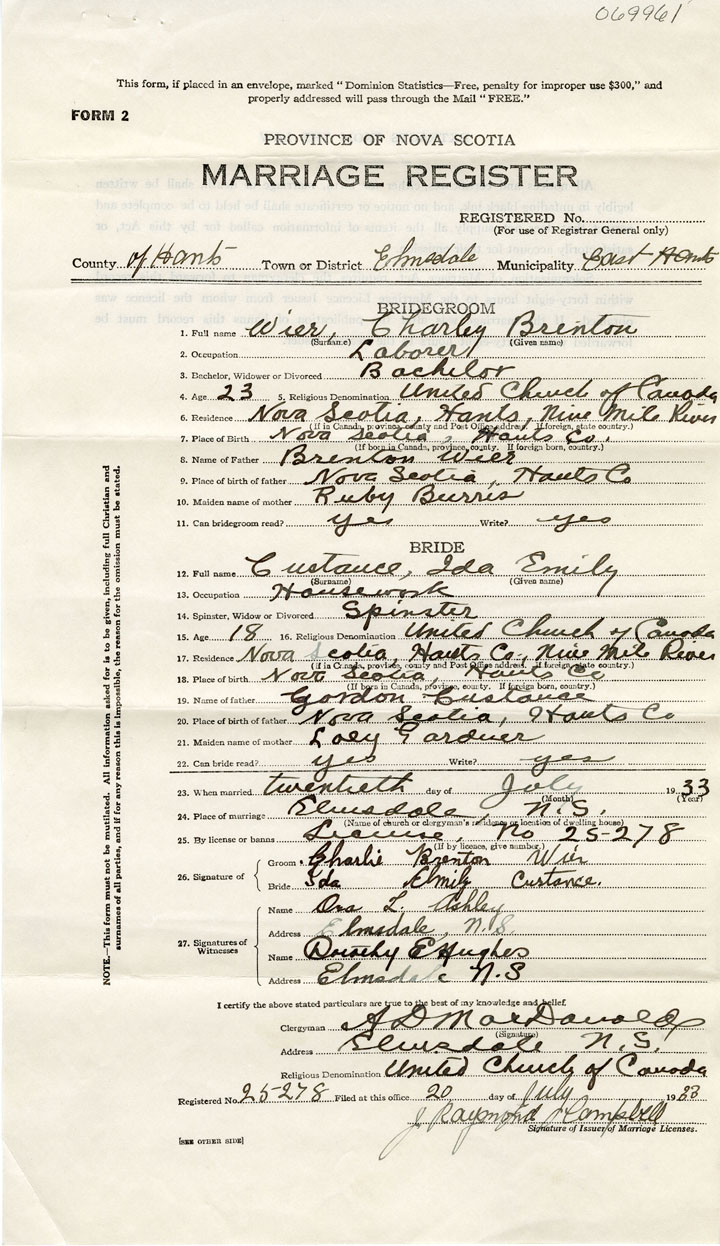 069961
This form, if placed in an envelope, marked “Dominion Statistics—Free, penalty for improper use $300,” and
properly addressed will pass through the Mail “FREE.”
FORM 2
PROVINCE OF NOVA SCOTIA
MARRIAGE REGISTER
REGISTERED No.
(For use of Registrar General only)
County of Hants Town or District Elmsdale Municipality East Hants
BRIDEGROOM
1. Full name Wier, Charley Brenton
(Surname) (Given name)
2. Occupation Laborer
3. Bachelor, Widower or Divorced Bachelor
4. Age 23 5. Religious Denomination United Church of Canada
6. Residence Nova Scotia, Hants, Nine Mile River
(If in Canada, province, county and Post Office address. If foreign, state country.)
7. Place of Birth Nova Scotia, Hants Co.
(If born in Canada, province, county. If foreign born, country.)
8. Name of Father Brenton Wier
9. Place of birth of father Nova Scotia, Hants Co
10. Maiden name of mother Ruby Burris
11. Can bridegroom read? yes Write? yes
BRIDE
12. Full name Custance, Ida Emily
(Surname) (Given name)
13. Occupation Housework
14. Spinster, Widow or Divorced Spinster
15. Age 18 16. Religious Denomination United Church of Canada
17. Residence Nova Scotia, Hants Co., Nine Mile River
(If in Canada, province, county and Post Office address. If foreign, state country.)
18. Place of birth Nova Scotia, Hants Co
(If born in Canada, province, county. If foreign born, country.)
19. Name of father Gordon Custance
20. Place of birth of father Nova Scotia, Hants Co
21. Maiden name of mother Gardner
22. Can bride read? yes Write? yes
23. When married twentieth day of July 1933
(Month) (Year)
24. Place of marriage Elmsdale, N.S.
(Name of church or clergyman's residence or location of dwelling house)
25. By license or banns License, No 25-278
(If by licence, give number.)
26. Signature of
Groom Charlie Brenton Wier
Bride Ida Emily Custance.
27. Signatures of Witnesses
Name L. Ashley
Address Elmsdale, N.S.
Name Dorothy E Hughes
Address Elmsdale N.S
NOTE.—This form must not be mutilated. All information asked for is to be given, including full Christian and
surnames of all parties, and if for any reason this is impossible, the reason for the omission must be stated.
I certify the above stated particulars are true to the best of my knowledge and belief.
Clergyman A D MacDonald
(Signature)
Address Elmsdale N.S.
Religious Denomination United Church of Canada
Registered No. 25-278 Filed at this office 20 day of July 1933
J. Raymond Campbell
Signature of Issuer of Marriage Licenses.
[SEE OTHER SIDE]